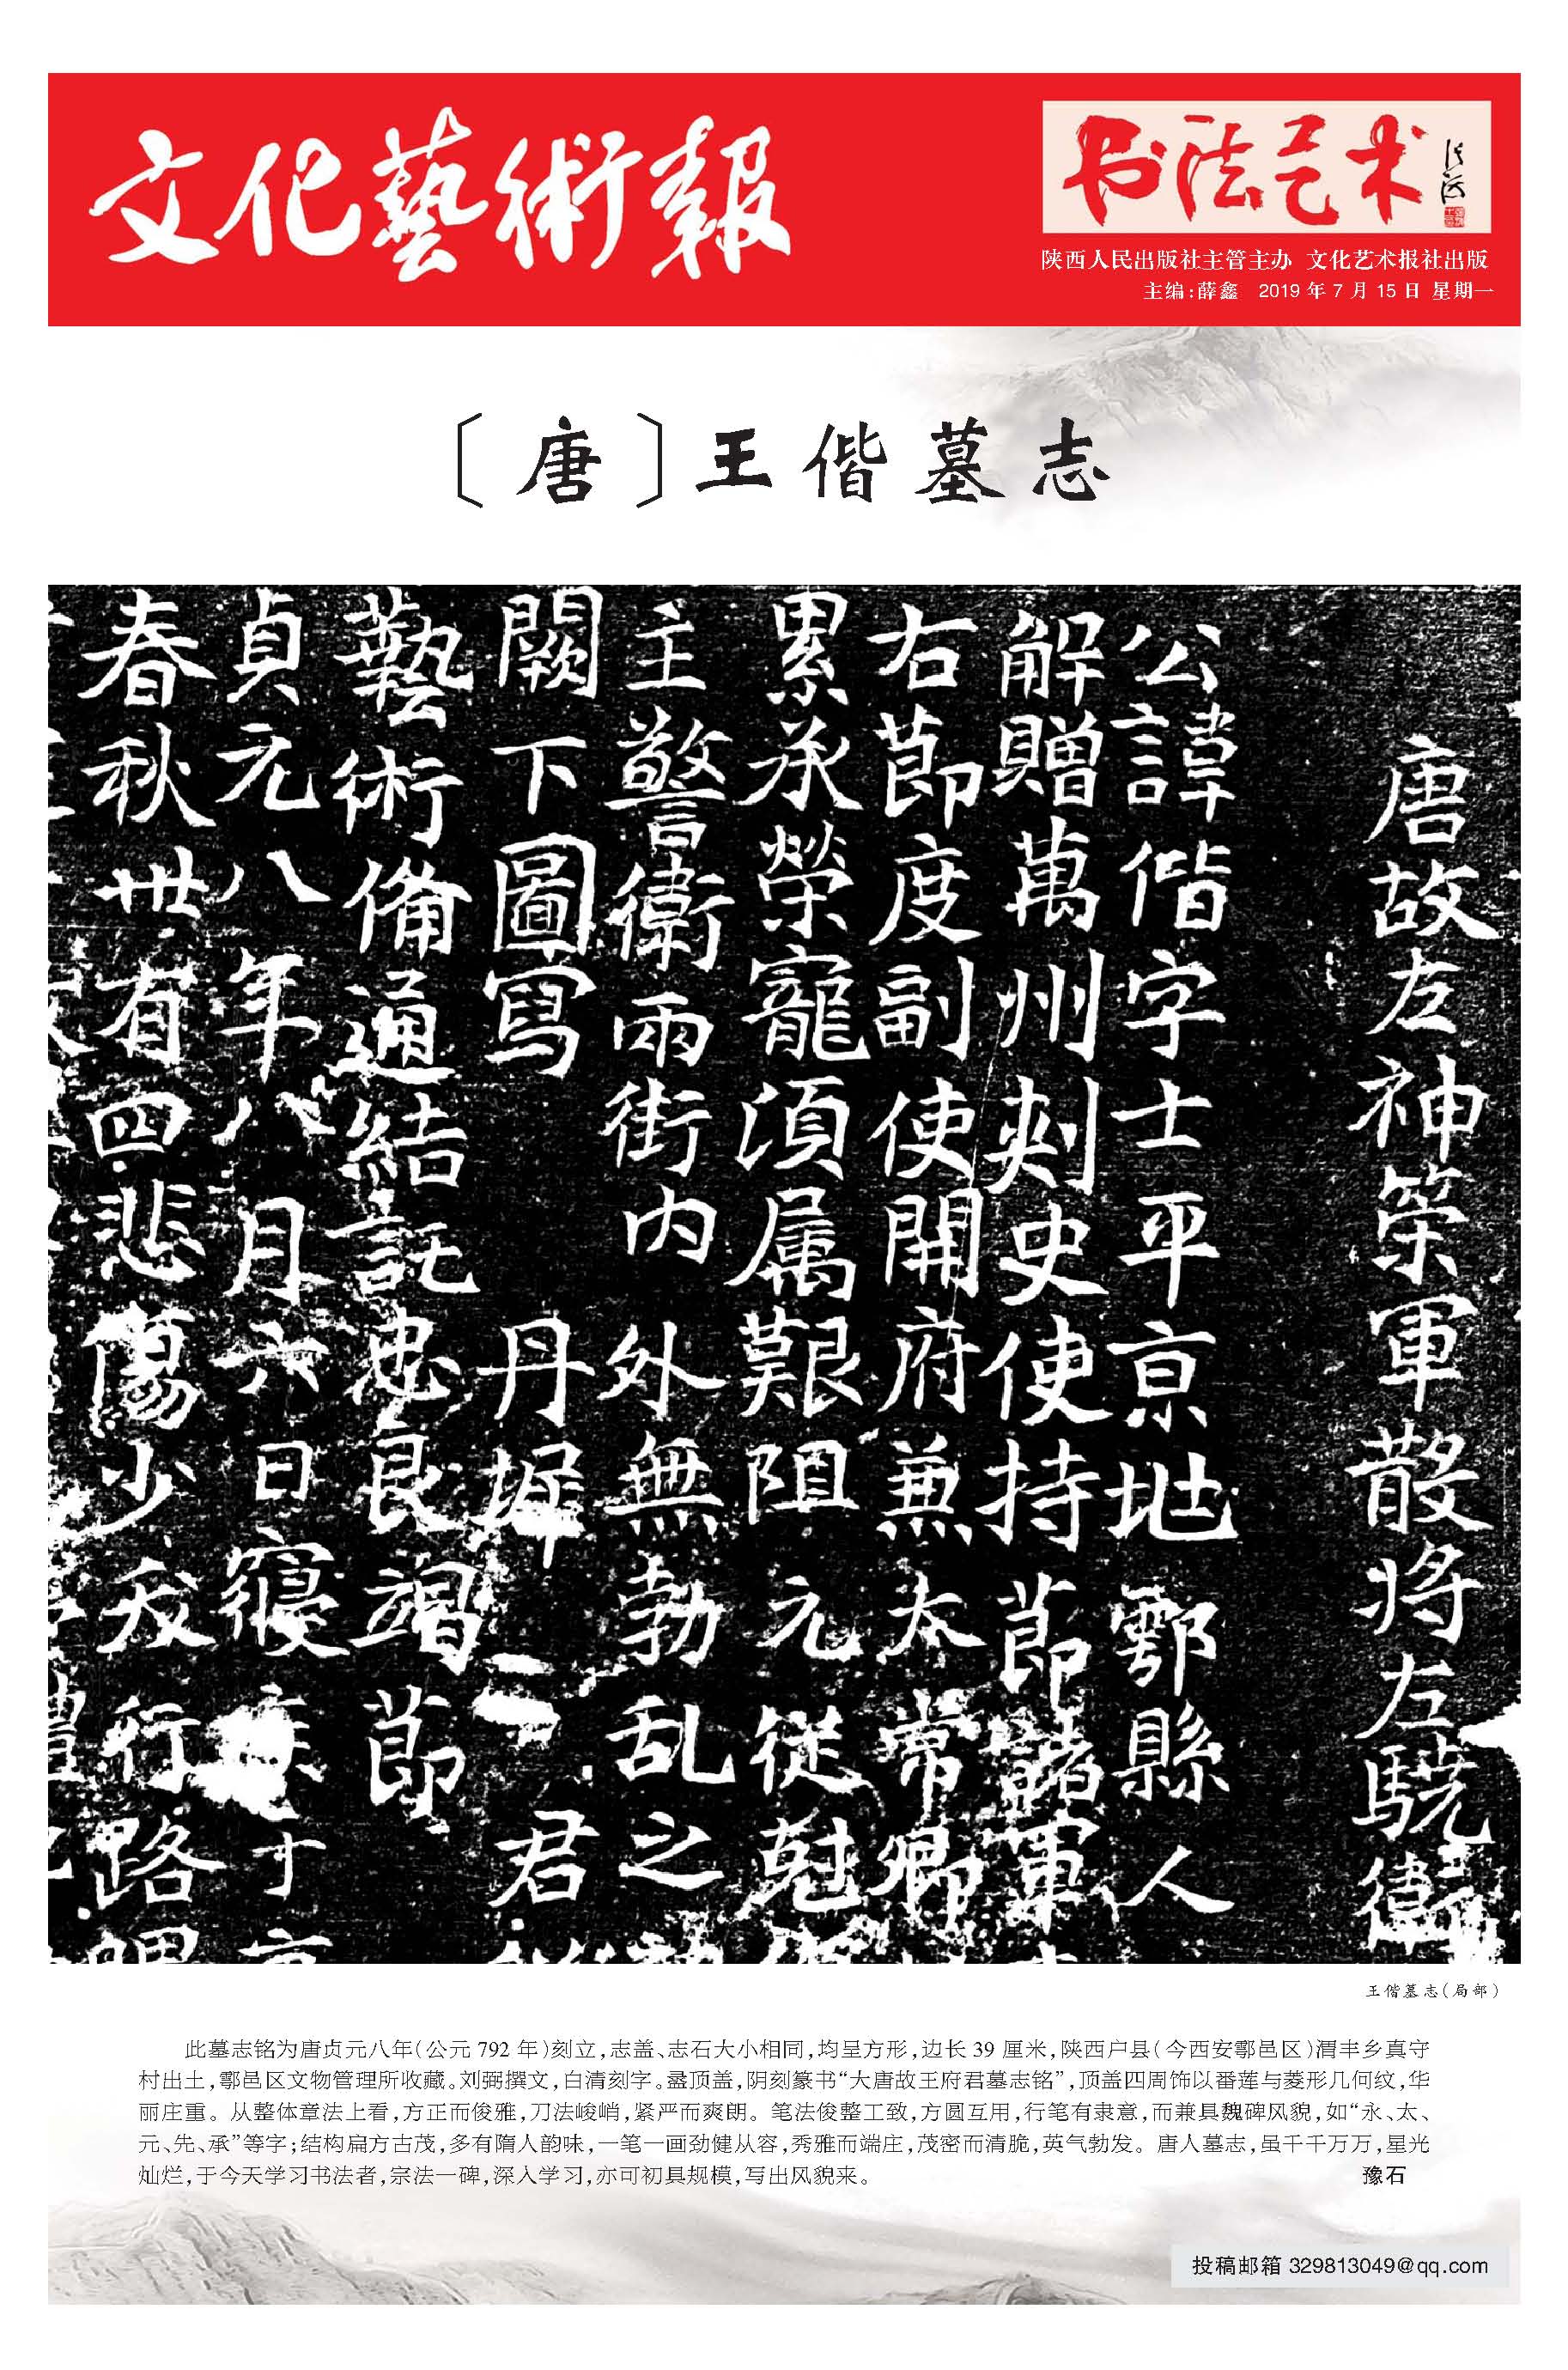 文化藝術報
书法艺术
陕西人民出版社主管主办 文化艺术报社出版
主编:薛鑫 2019 年 7 月 15 日 星期一
〔唐〕王偕墓志
唐故左神策軍散将左驍衛
公諱偕字士平京地鄠縣人
解贈萬州刺史使持節諸軍
右節度副使開府兼太常卿
累承榮寵須属艱阻元從剋
主警衛兩街内外無勃乱之
闕下圖寫 丹墀 君
藝術俻通結託忠良竭節
貞元八年八月六日寢疾于京
春秋世有四悲傷少哉行路
王偕墓志(局部)
此墓志铭为唐贞元八年(公元 792 年)刻立,志盖、志石大小相同,均呈方形,边长 39 厘米,陕西户县(今西安鄠邑区)渭丰乡真守
村出土,鄠邑区文物管理所收藏。刘弼撰文,白清刻字。盝顶盖,阴刻篆书“大唐故王府君墓志铭”,顶盖四周饰以番莲与菱形几何纹,华
丽庄重。从整体章法上看,方正而俊雅,刀法峻峭,紧严而爽朗。笔法俊整工致,方圆互用,行笔有隶意,而兼具魏碑风貌,如“永、太、
元、先、承”等字;结构扁方古茂,多有隋人韵味,一笔一画劲健从容,秀雅而端庄,茂密而清脆,英气勃发。唐人墓志,虽千千万万,星光
灿烂,于今天学习书法者,宗法一碑,深入学习,亦可初具规模,写出风貌来。 豫石
投稿邮箱 329813049@qq.com